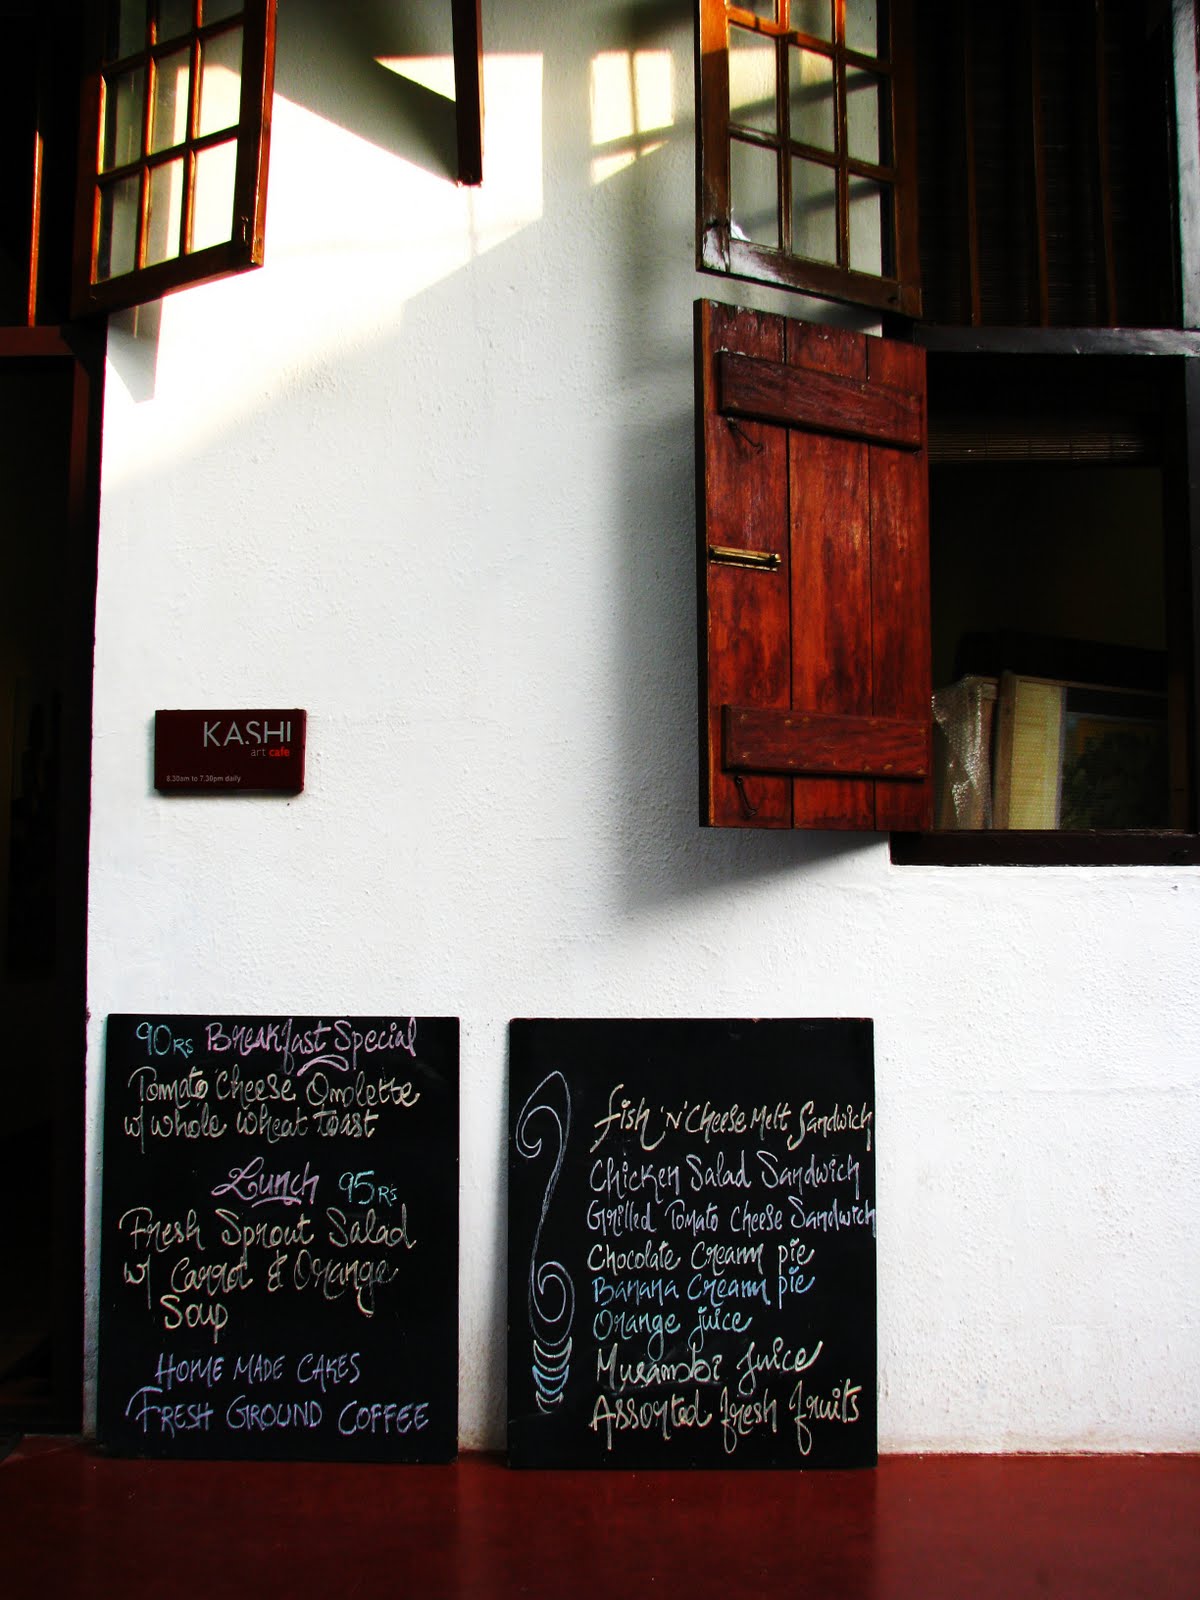 KASHI
art cafe
8.30am to 7.30pm daily
90Rs Breakfast Special
Tomato Cheese Omlette
w/ whole wheat toast
Lunch 95Rs
Fresh Sprout Salad
w/ Carrot & Orange
Soup
HOME MADE CAKES
FRESH GROUND COFFEE
fish 'N' Cheese Melt Sandwich
Chicken Salad Sandwich
Grilled Tomato Cheese Sandwich
Chocolate Cream pie
Banana Cream pie
Orange juice
Musambi juice
Assorted fresh fruits